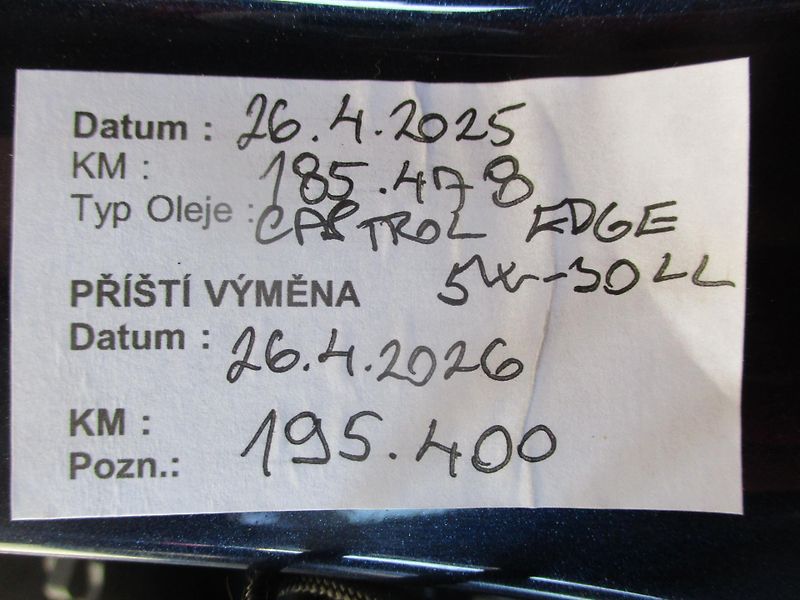 Datum : 26.4.2025
KM : 185.478
Typ Oleje : CASTROL EDGE
5W-30 LL
PŘÍŠTÍ VÝMĚNA
Datum : 26.4.2026
KM : 195.400
Pozn.: